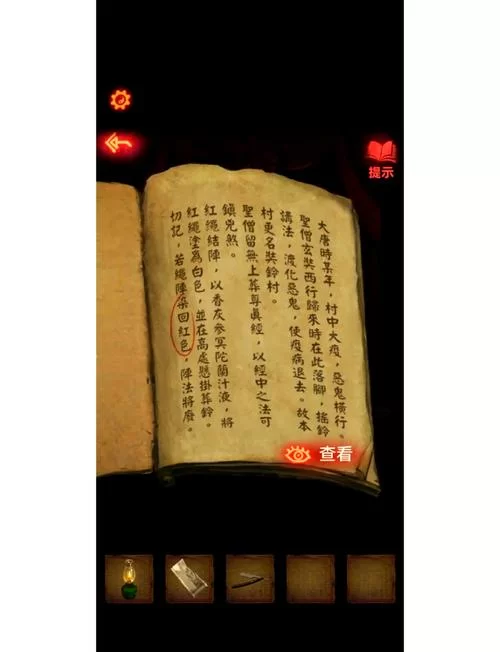 提示
大唐時某年，村中大疫，惡鬼橫行。
聖僧玄奘西行歸來時在此落腳，搖鈴
講法，渡化惡鬼，使疫病退去。故本
村更名奘鈴村。
聖僧留無上葬尊眞經，以經中之法可
鎮兇煞。
紅繩結陣，以香灰參冥陀蘭汁液，將
紅繩塗爲白色，並在高處懸掛葬鈴。
切記，若繩陣染回紅色，陣法將廢。
查看